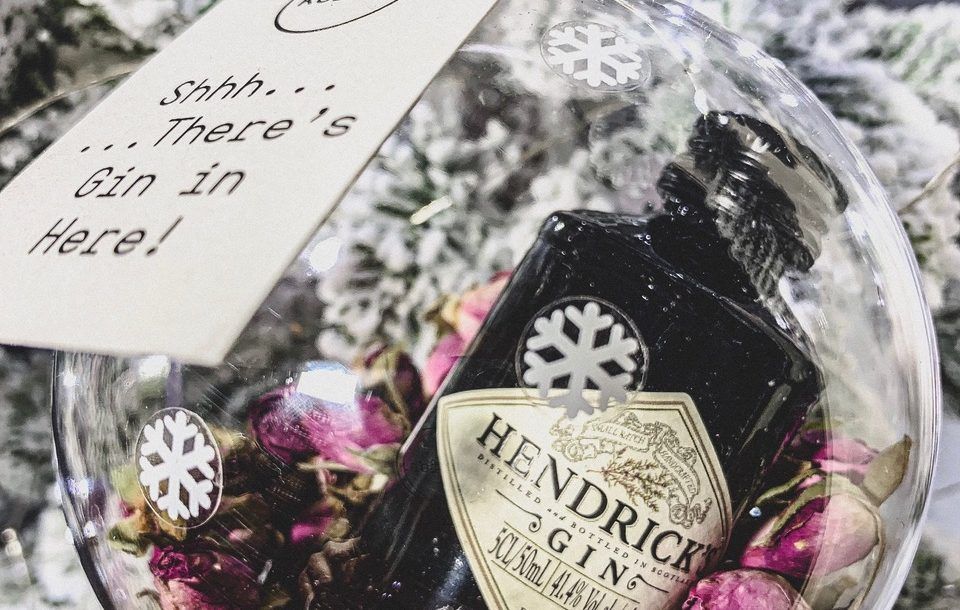 Shhh...
...There's
Gin in
Here!
HENDRICK'S
DISTILLED AND BOTTLED IN SCOTLAND
GIN
5CL/50mL | 41,4% Vol